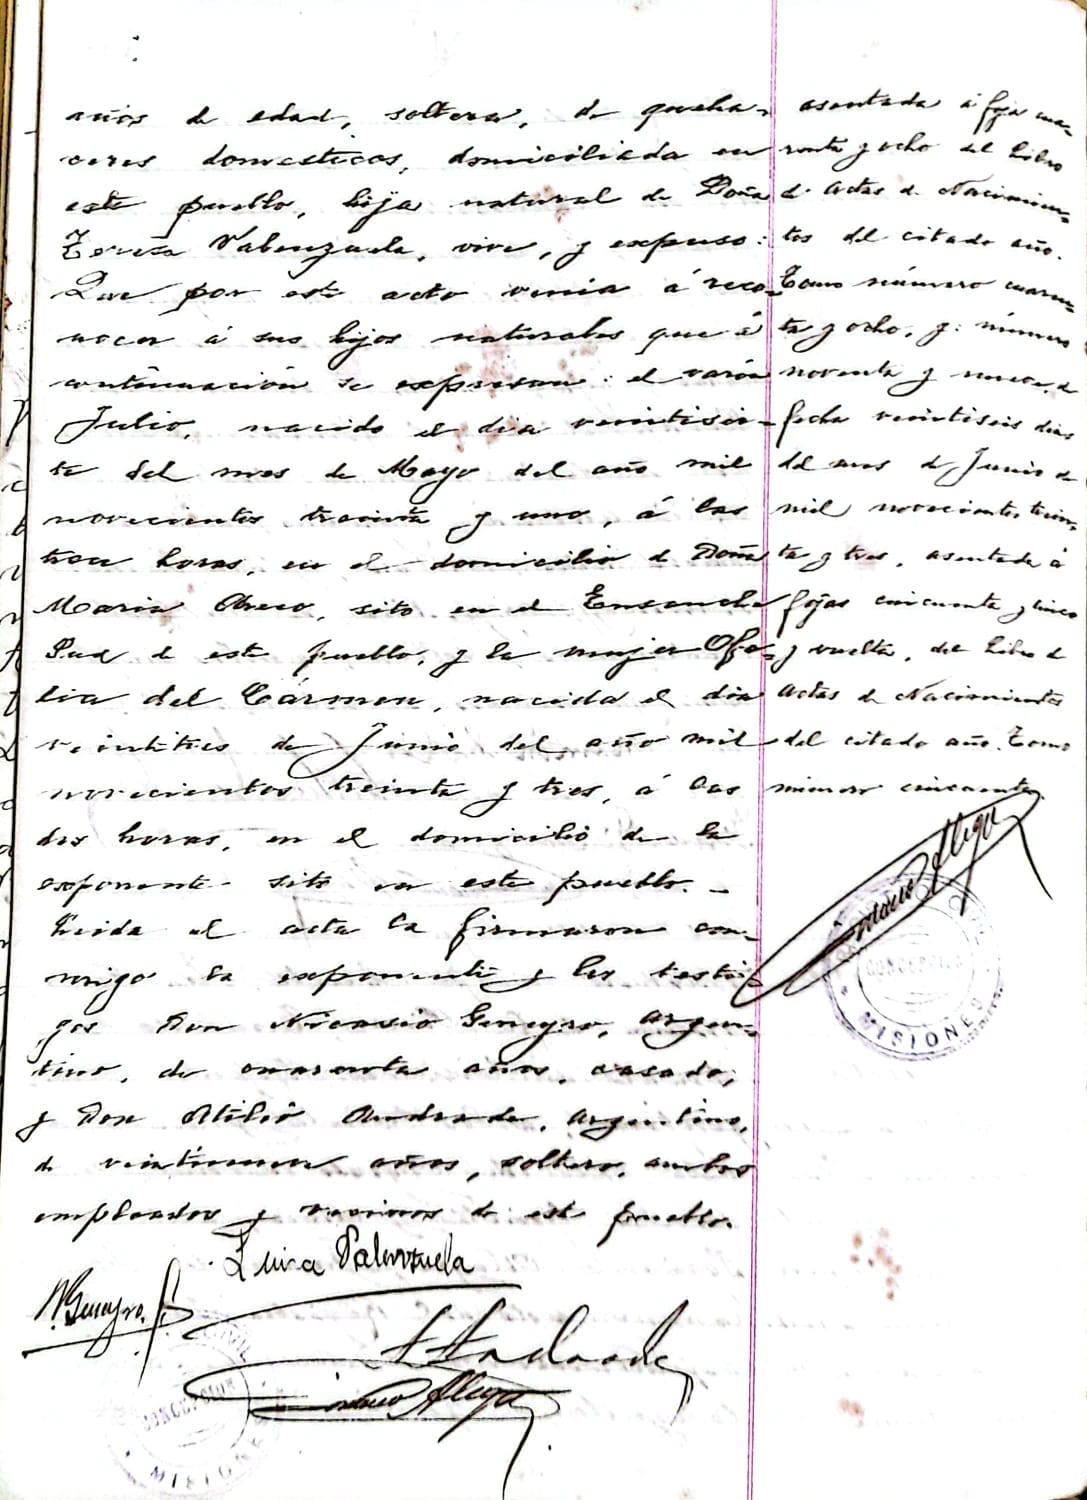 años de edad, soltera, de queha-
ceres domesticos, domiciliada en
este pueblo, hija natural de Doña
Teresa Valenzuela, vive, y expuso:
Que por este acto venia á reco-
nocer á sus hijos naturales que á
continuación se expresan: el varón
Julio, nacido el dia veintisie-
te del mes de Mayo del año mil
novecientos treinta y uno, á las
trece horas, en el domicilio de Doña
Maria Checo, sito en el Ensanche
Sud de este pueblo, y la mujer Ofe-
lia del Cármen, nacida el dia
veintitres de Junio del año mil
novecientos treinta y tres, á las
dos horas, en el domicilio de la
exponente sito en este pueblo. -
Leida el acta la firmaron con-
migo la exponente y los testi-
gos Don Nicasio Geneyro, argen-
tino, de cuarenta años, casado,
y Don Atilio Andrade, argentino,
de años, soltero, ambos
empleados y vecinos de este pueblo.
Luisa Valenzuela
N. Geneyro.
A Andrade
CIVIL
CONCEPCION
MISIONES
asentada á foja cua-
renta y ocho del Libro
de actas de Nacimien-
tos del citado año.
Tomo número cuaren-
ta y ocho, y: número
noventa y nueve, de
fecha veintiseis dias
del mes de Junio de
mil novecientos trein-
ta y tres, asentada á
fojas cincuenta y cinco
y vuelta, del Libro de
actas de Nacimientos
del citado año. Tomo
número cincuenta.
CIVIL
CONCEPCION
MISIONES